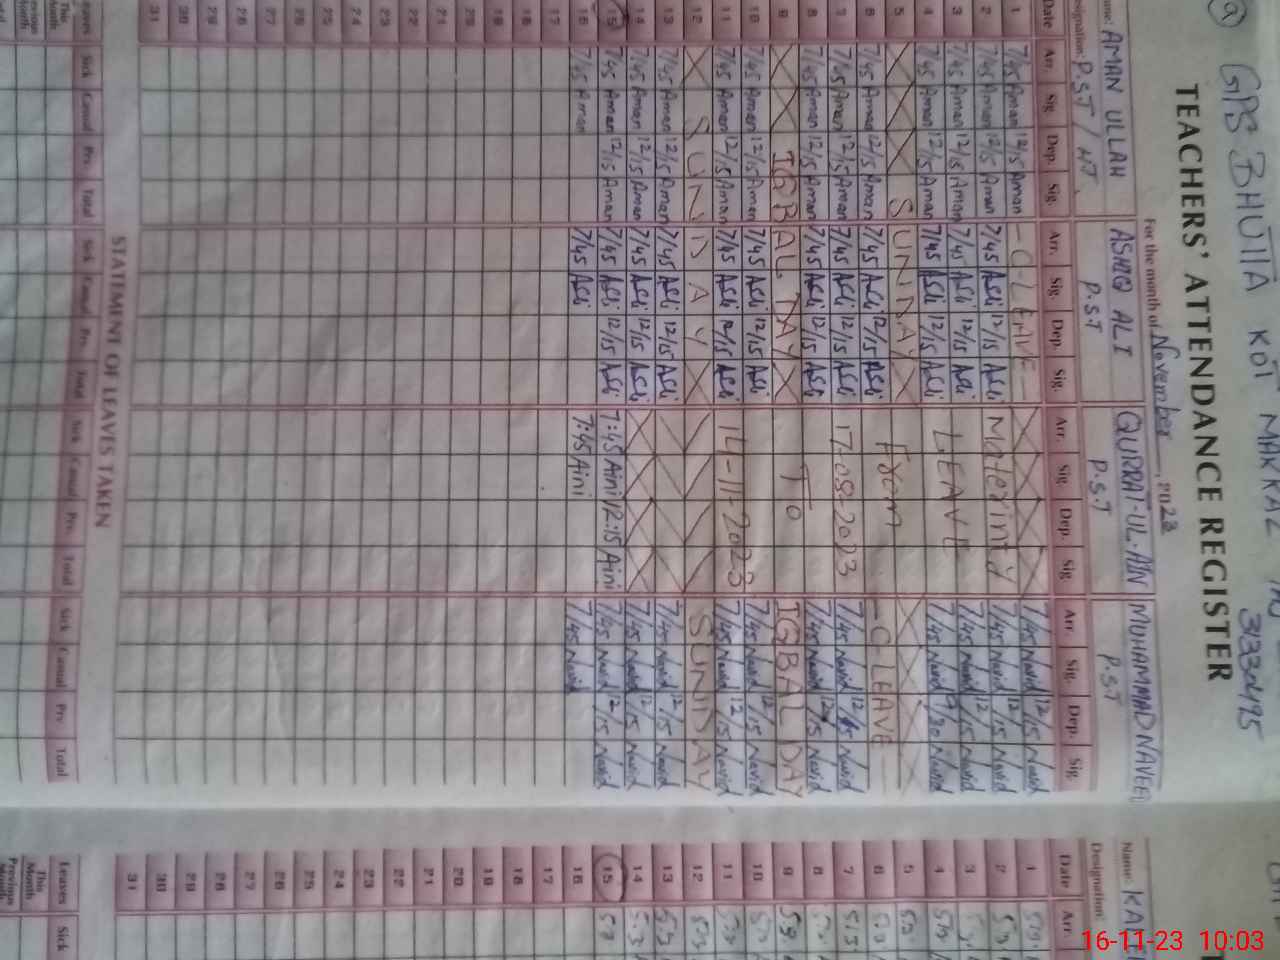 GPS BHUTTA KOT MAKKAL
31330495
TEACHERS' ATTENDANCE REGISTER
For the month of November, 2023
Name: AMAN ULLAH ASHIQ ALI QURRAT-UL-AIN MUHAMMAD NAVEED
Designation: P.S.T / HT P.S.T P.S.T P.S.T
Date Arr. Sig. Dep. Sig. Arr. Sig. Dep. Sig. Arr. Sig. Dep. Sig. Arr. Sig. Dep. Sig.
1 7/45 Aman 12/15 Aman - C-LEAVE - 7/45 Navid 12/15 Navid
2 7/45 Aman 12/15 Aman 7/45 Ali 12/15 Ali Materinty 7/45 Navid 12/15 Navid
3 7/45 Aman 12/15 Aman 7/45 Ali 12/15 Ali LEAVE 7/45 Navid 12/15 Navid
4 7/45 Aman 12/15 Aman 7/45 Ali 12/15 Ali 7/45 Navid Navid
5 SUNDAY
6 7/45 Aman 12/15 Aman 7/45 Ali 12/15 Ali From - C-LEAVE -
7 7/45 Aman 12/15 Aman 7/45 Ali 12/15 Ali 17-08-2023 7/45 Navid 12/15 Navid
8 7/45 Aman 12/15 Aman 7/45 Ali 12/15 Ali 7/45 Navid 12/15 Navid
9 IGBAL DAY To IGBAL DAY
10 7/45 Aman 12/15 Aman 7/45 Ali 12/15 Ali 7/45 Navid 12/15 Navid
11 7/45 Aman 12/15 Aman 7/45 Ali 12/15 Ali 14-11-2023 7/45 Navid 12/15 Navid
12 SUNDAY SUNDAY
13 7/45 Aman 12/15 Aman 7/45 Ali 12/15 Ali 7/45 Navid 12/15 Navid
14 7/45 Aman 12/15 Aman 7/45 Ali 12/15 Ali 7/45 Navid 12/15 Navid
15 7/45 Aman 12/15 Aman 7/45 Ali 12/15 Ali 7:45 Aini 12:15 Aini 7/45 Navid 12/15 Navid
16 7/45 Aman 7/45 Ali 7:45 Aini 7/45 Navid
17
18
19
20
21
22
23
24
25
26
27
28
29
30
31
STATEMENT OF LEAVES TAKEN
Leaves Sick Casual Prv. Total Sick Casual Prv. Total Sick Casual Prv. Total Sick Casual Prv. Total
This Month
Previous Month
Name:
Designation:
Date Arr
1
2
3
4
5
6
7
8
9
10
11
12
13
14
15
16
17
18
19
20
21
22
23
24
25
26
27
28
29
30
31
Leaves Sick
This Month
Previous Month
16-11-23 10:03